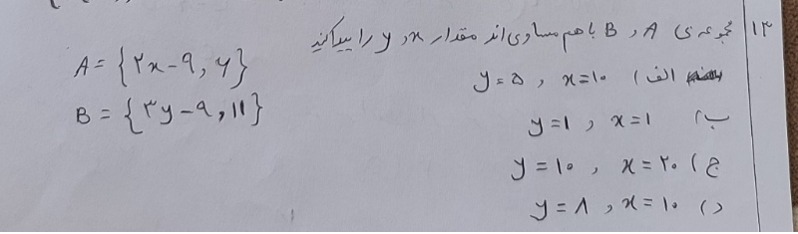 ۱۳ مجموعه‌ی A و B با هم مساوی‌اند مقدار x و y را پیدا کنید
A = {۲x-۹, ۶}
B = {۳y-۹, ۱۱}
الف) x=۱۰ , y=۵
ب) x=۱ , y=۱
ج) x=۲۰ , y=۱۰
د) x=۱۰ , y=۸